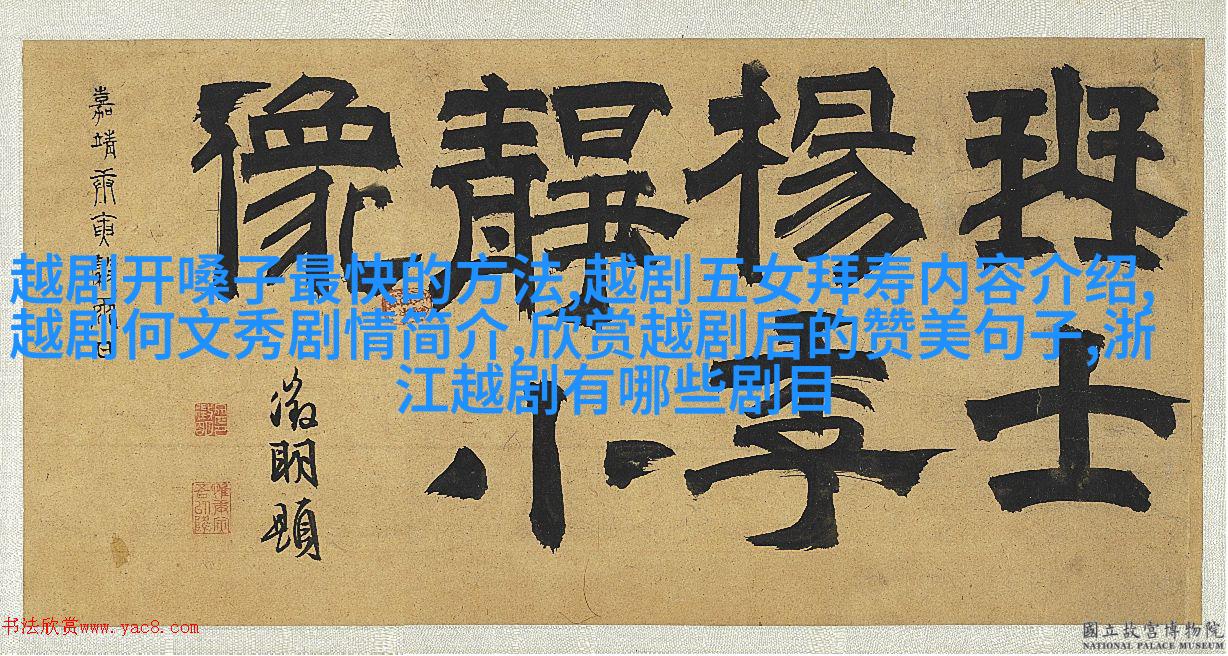 琴士
楊季
靜小
像
嘉靖庚寅
徵明題
越剧开嗓子最快的方法,越剧五女拜寿内容介绍,
越剧何文秀剧情简介,欣赏越剧后的赞美句子,浙
江越剧有哪些剧目
书法欣赏www.yac8.com
國立故宮博物院
NATIONAL PALACE MUSEUM